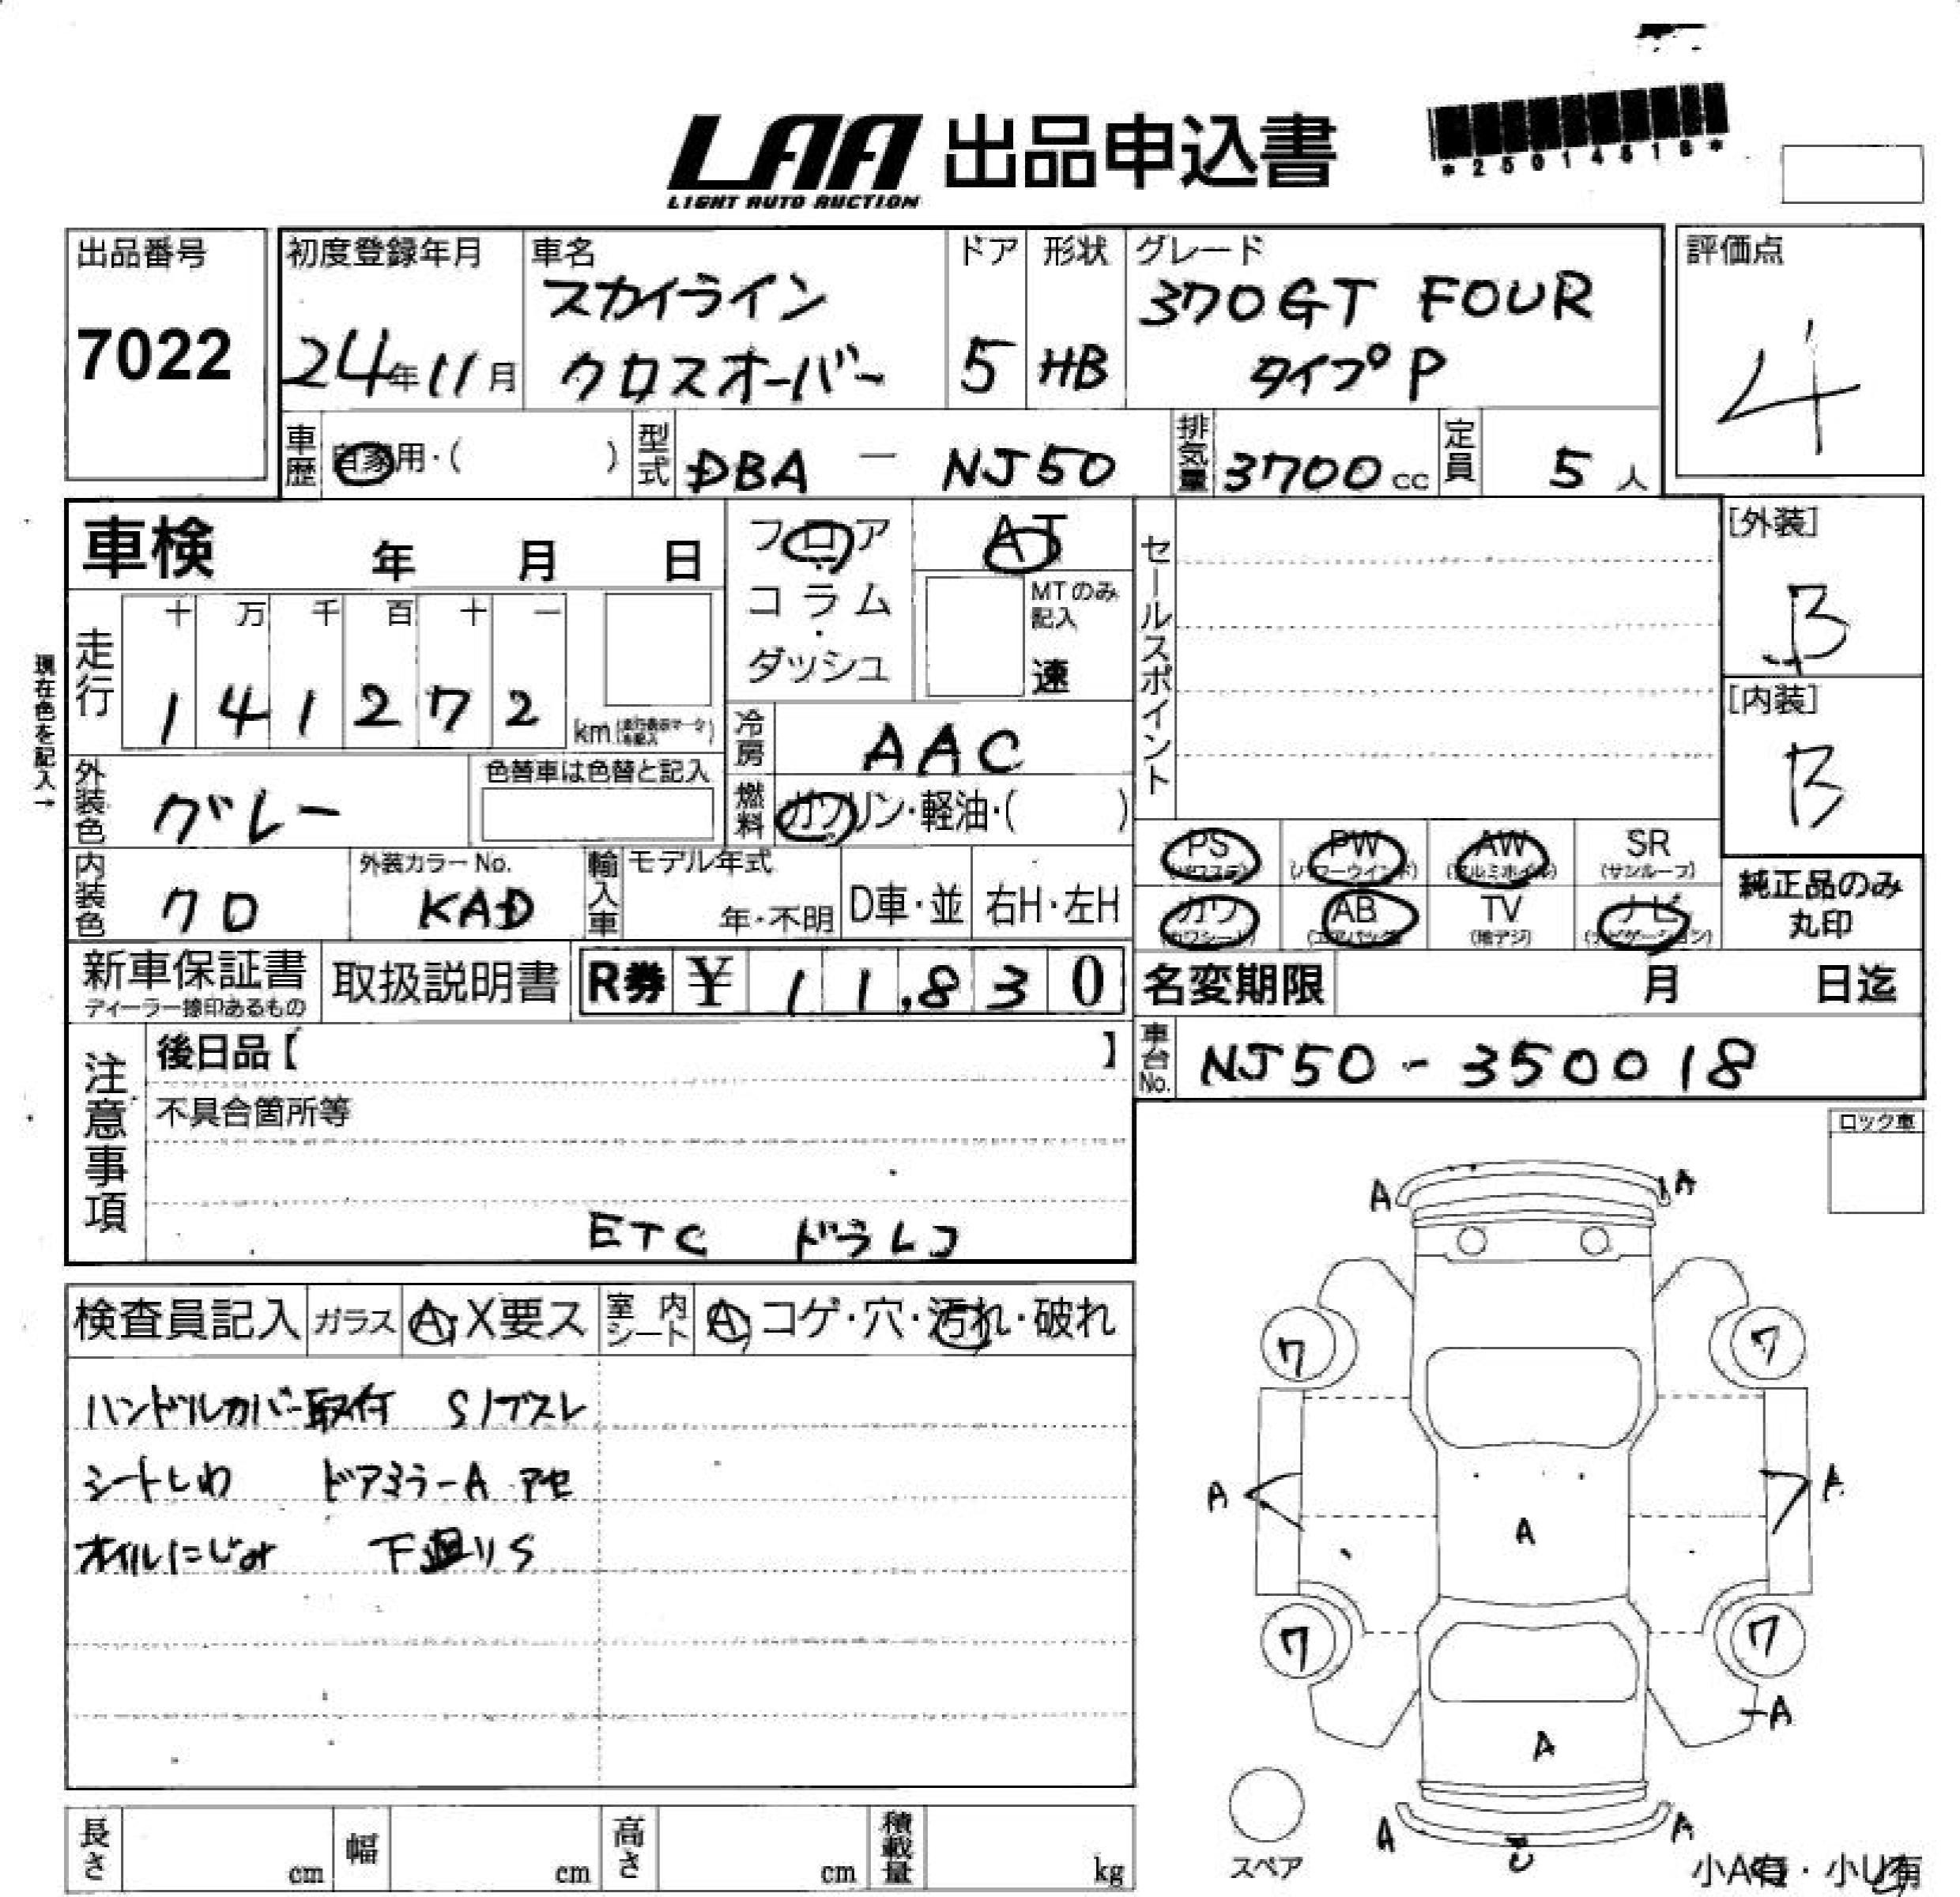 LAA 出品申込書
LIGHT AUTO AUCTION
*25014516*
出品番号
7022
初度登録年月
24年11月
車名
スカイライン
クロスオーバー
ドア
5
形状
HB
グレード
370GT FOUR
タイプP
評価点
4
車歴 自家用・( )
型式 DBA - NJ50
排気量 3700cc
定員 5人
車検 年 月 日
フロア
コラム
・
ダッシュ
AT
MTのみ
記入
速
セールスポイント
[外装]
B
[内装]
B
現在色を記入→
走行
十 万 千 百 十 一
1 4 1 2 7 2
km
冷房 AAC
燃料 ガソリン・軽油・( )
外装色 グレー
色替車は色替と記入
内装色 クロ
外装カラーNo.
KAD
輸入車
モデル年式
年・不明
D車・並
右H・左H
PS PW AW SR
(パワステ) (パワーウインド) (アルミホイル) (サンルーフ)
カワ AB TV ナビ
(カワシート) (エアバッグ) (地デジ) (ナビゲーション)
純正品のみ
丸印
新車保証書
ディーラー捺印あるもの
取扱説明書
R券 ¥ 11,830
名変期限 月 日迄
車台No. NJ50-350018
注意事項
後日品【 】
不具合箇所等
ETC ドラレコ
ロック車
検査員記入
ガラス A・X要ス
室内シート A・コゲ・穴・汚れ・破れ
ハンドルカバー取付 Sノブスレ
シートしわ ドアミラーA アセ
オイルにじみ 下廻りS
A A
7 7
A A
A
7 7
A
A
A A
スペア
小A有・小U有
長さ cm
幅 cm
高さ cm
積載量 kg